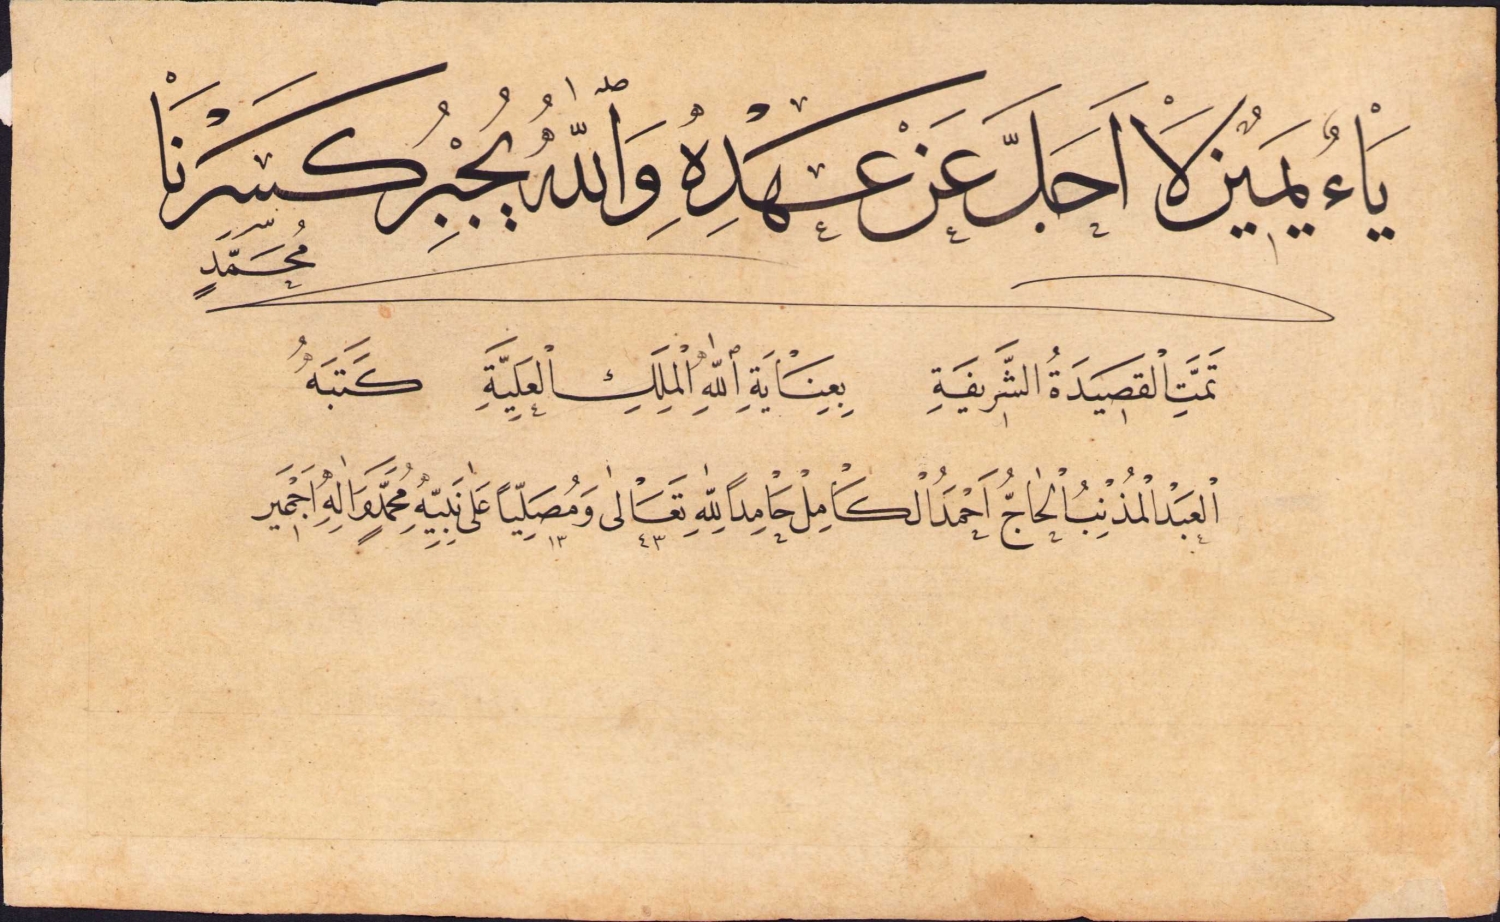 يَاءُ يَمِينٍ لَا اَحَلَّ عَنْ عَهْدِهِ وَاللّٰهُ يُجْبِرُ كَسْرَنَا
مُحَمَّدٍ
تَمَّتِ الْقَصِيدَةُ الشَّرِيفَةِ بِعِنَايَةِ اللّٰهِ الْمَلِكِ الْعَلِيَّةِ كَتَبَهُ
الْعَبْدُ الْمُذْنِبُ الْحَاجُّ اَحْمَدُ الْكَامِلْ حَامِداً لِلّٰهِ تَعَالٰى وَمُصَلِّياً عَلٰى نَبِيِّهِ مُحَمَّدٍ وَاٰلِهِ اَجْمَعِين
١٣ ٤٣